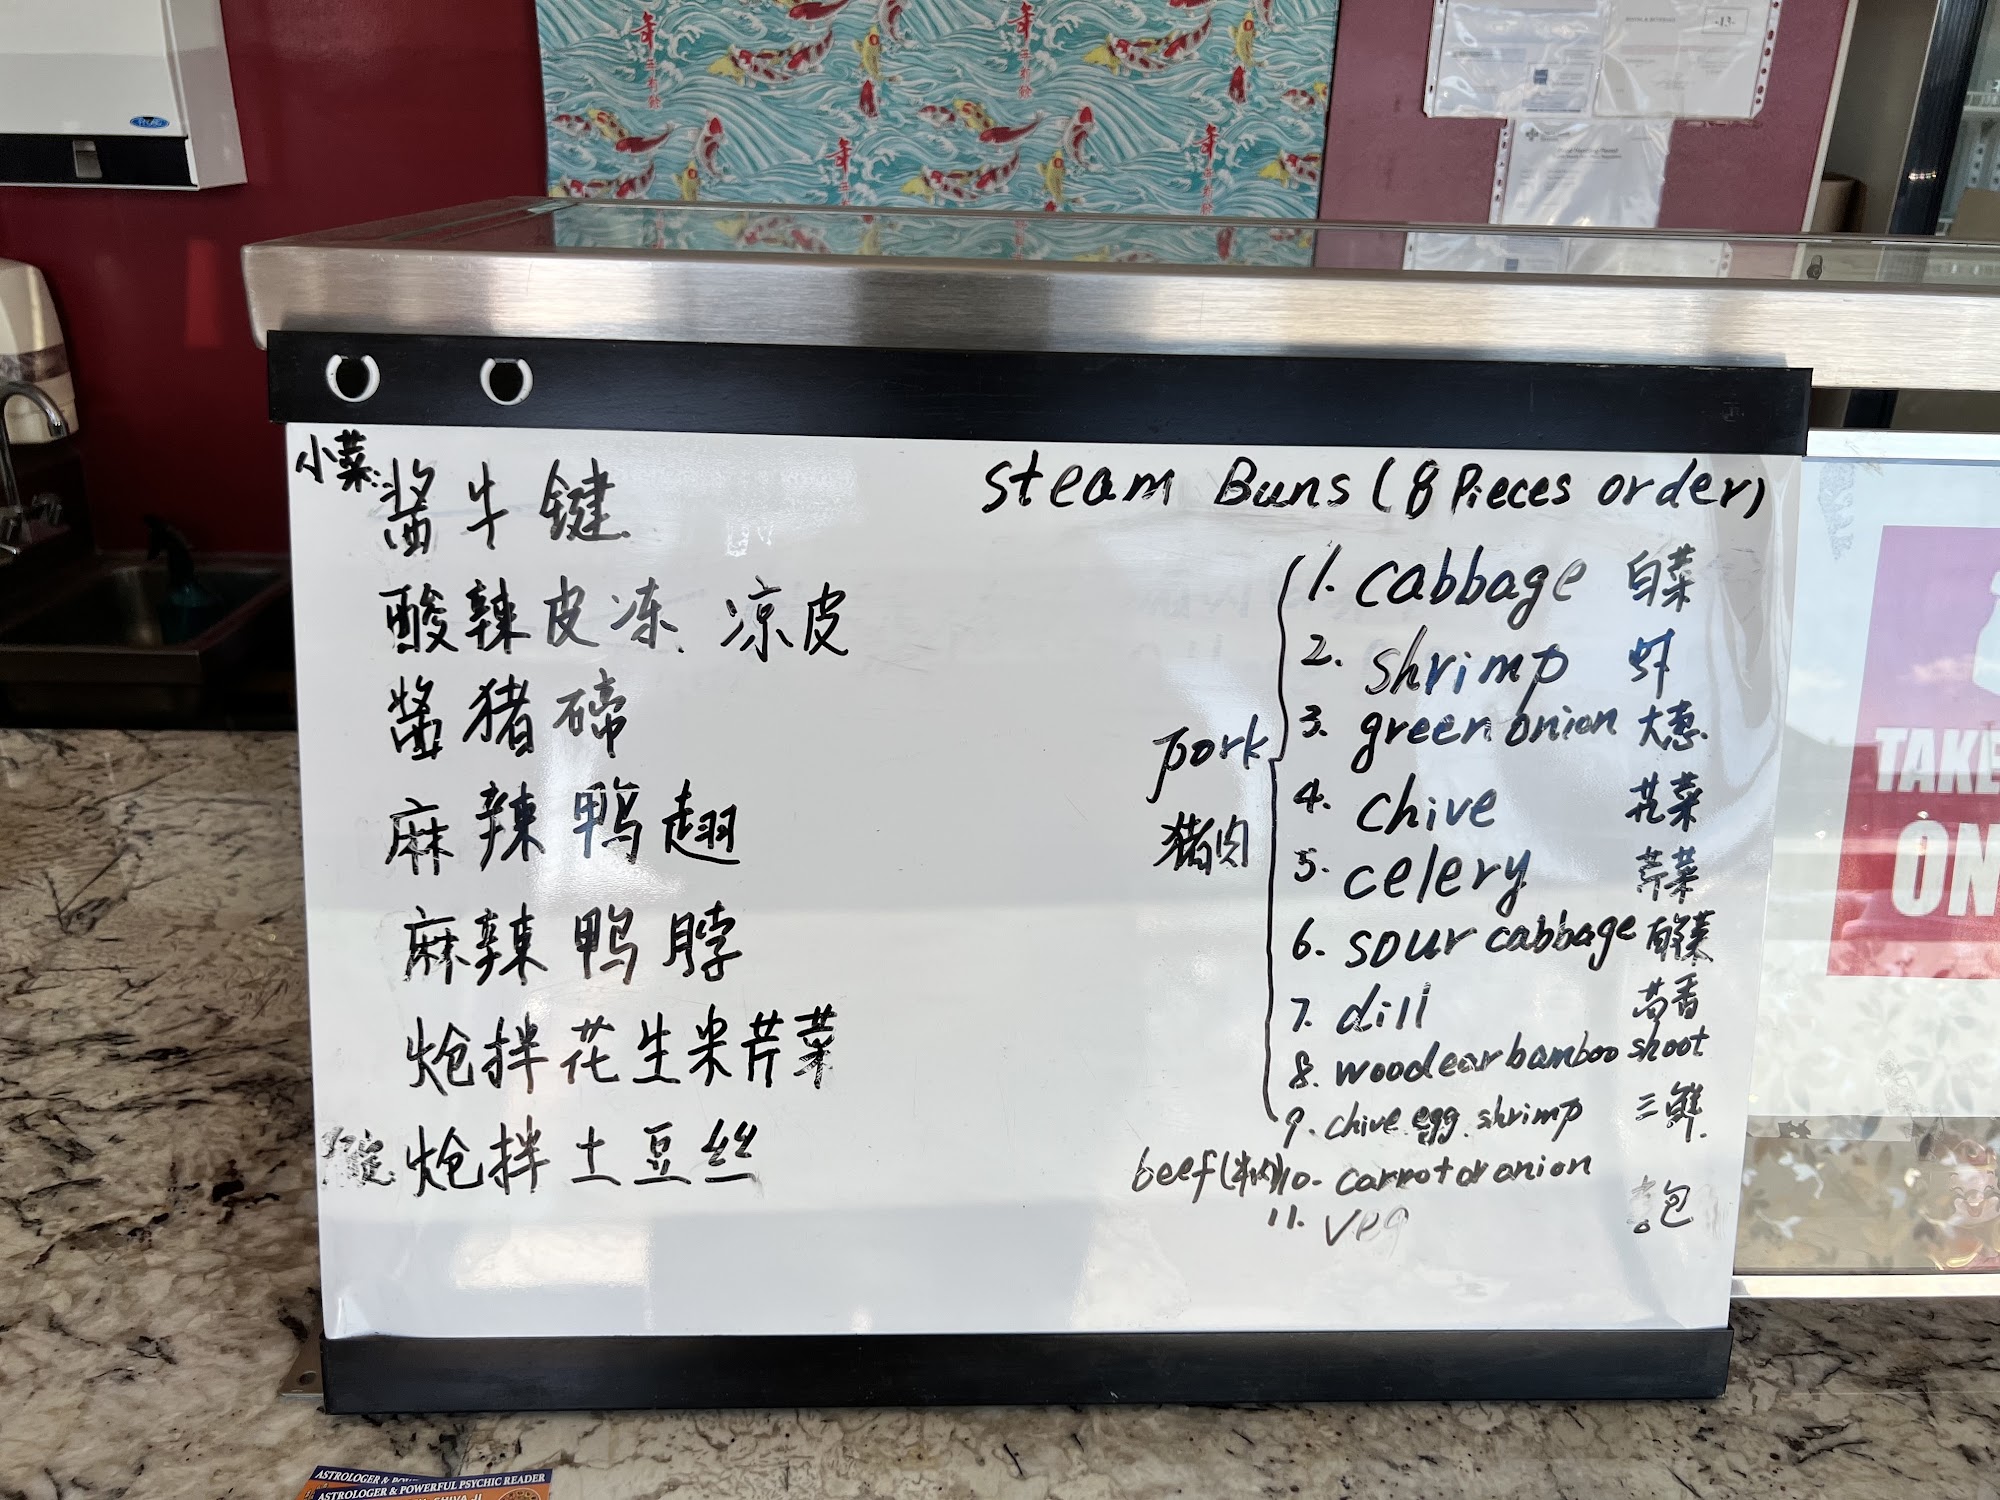 小菜:
酱牛键
酸辣皮冻、凉皮
酱猪碲
麻辣鸭翅
麻辣鸭脖
炝拌花生米芹菜
炝拌土豆丝
steam Buns (8 Pieces order)
pork
猪肉
1. cabbage 白菜
2. shrimp 虾
3. green onion 大葱
4. chive 韭菜
5. celery 芹菜
6. sour cabbage 酸菜
7. dill 茴香
8. woodear bamboo shoot
9. chive. egg. shrimp 三鲜
beef (牛肉) 10. carrot or onion
11. veg 素包
TAKE
ON
年年有餘
ASTROLOGER & POWERFUL PSYCHIC READER